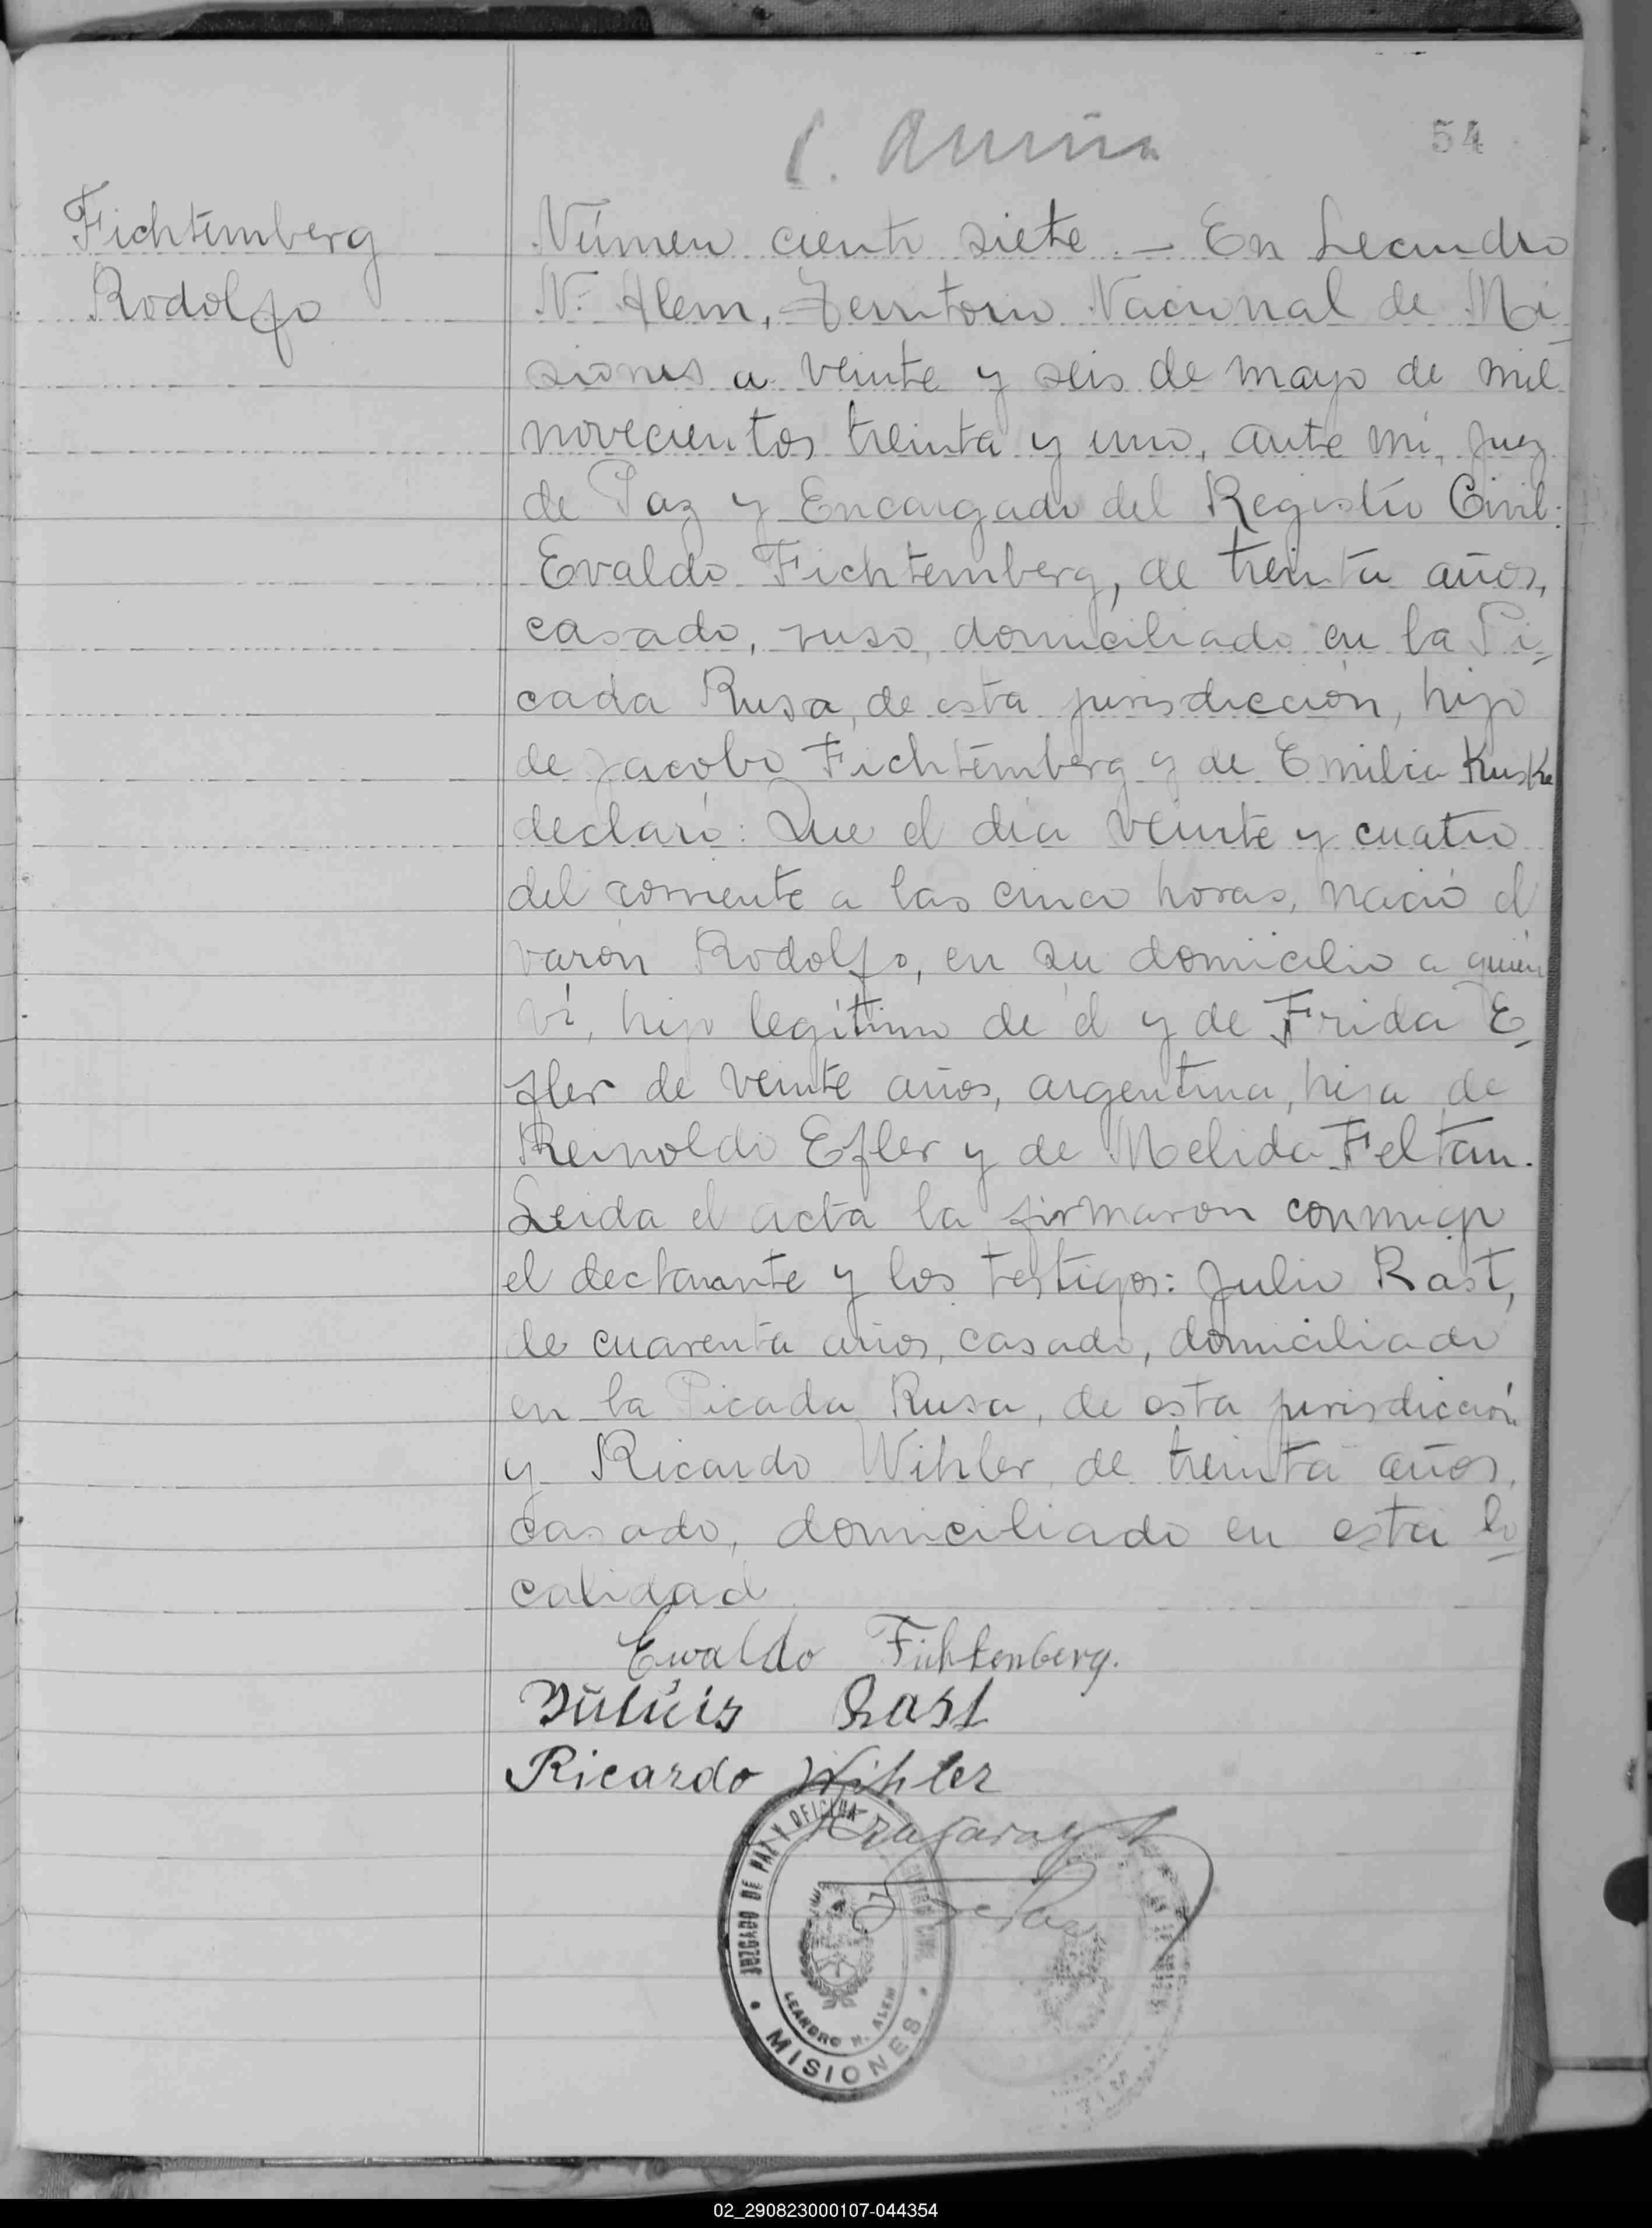 54
Fichtemberg
Rodolfo
Número ciento siete. — En Leandro
N. Alem, Territorio Nacional de Mi
siones a veinte y seis de mayo de mil
novecientos treinta y uno, ante mí, Juez
de Paz y Encargado del Registro Civil:
Evaldo Fichtemberg, de treinta años,
casado, ruso, domiciliado en la Pi-
cada Rusa, de esta jurisdicción, hijo
de Jacobo Fichtemberg y de Emilia Kuske
declaró: Que el día veinte y cuatro
del corriente a las cinco horas, nació el
varón Rodolfo, en su domicilio a quien
ví, hijo legítimo de él y de Frida E-
fler de veinte años, argentina, hija de
Reinoldo Efler y de Melida Feltan.
Leida el acta la firmaron conmigo
el declarante y los testigos: Julio Rast,
de cuarenta años, casado, domiciliado
en la Picada Rusa, de esta jurisdicción
y Ricardo Wihler, de treinta años,
casado, domiciliado en esta lo-
calidad
Ewaldo Fichtenberg.
Rast
Ricardo Wihler
JUZGADO DE PAZ Y OFICINA
LEANDRO N. ALEM
• MISIONES •
02_290823000107-044354